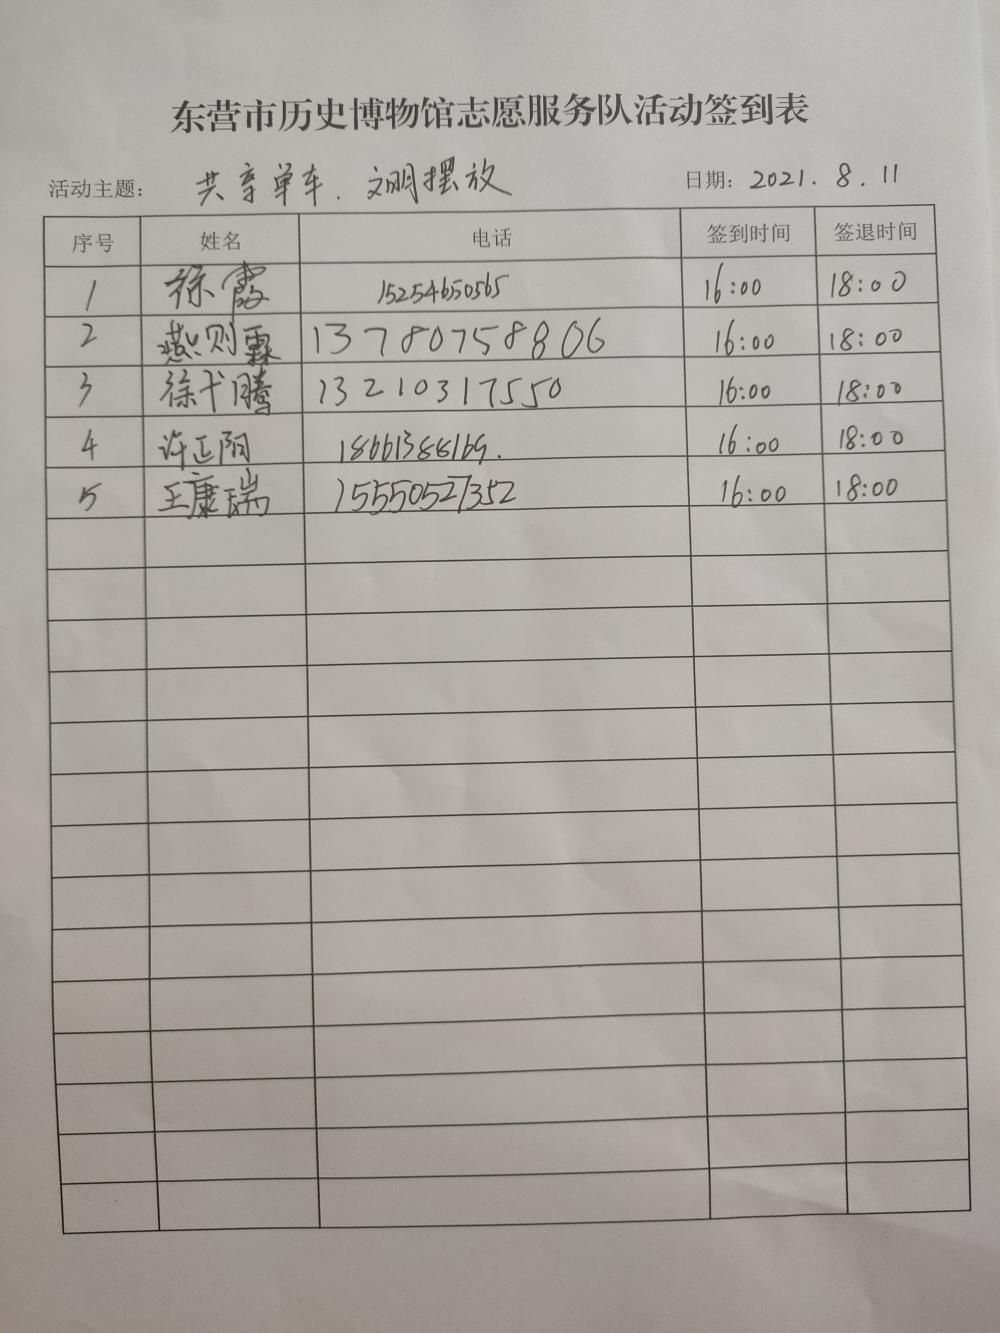 东营市历史博物馆志愿服务队活动签到表
活动主题： 共享单车．文明摆放 日期：2021．8．11
序号 姓名 电话 签到时间 签退时间
1 徐霞 15254650565 16:00 18:00
2 燕则霖 13780758806 16:00 18:00
3 徐弋腾 13210317550 16:00 18:00
4 许正阳 18661388169. 16:00 18:00
5 王康瑞 15550527352 16:00 18:00